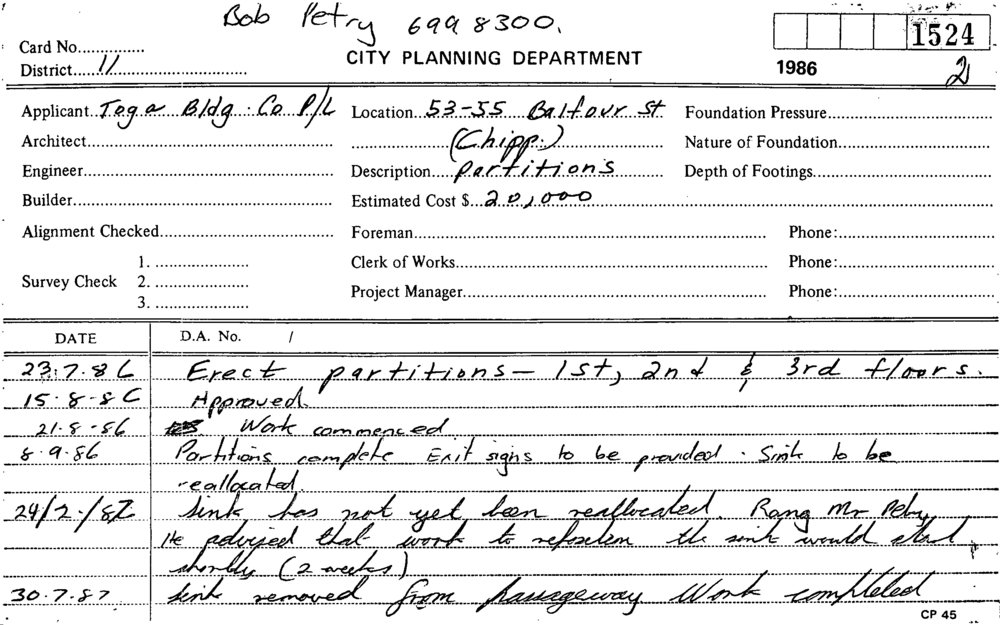 Bob Petry 699 8300.
Card No............... 1524
CITY PLANNING DEPARTMENT
District.....11........................... 1986 2
Applicant Toga Bldg. Co P/L Location 53-55 Balfour St Foundation Pressure
Architect (Chipp.) Nature of Foundation
Engineer Description Partitions Depth of Footings
Builder Estimated Cost $ 20,000
Alignment Checked Foreman Phone:
1. Clerk of Works Phone:
Survey Check 2.
3. Project Manager Phone:
DATE D.A. No. /
23.7.86 Erect partitions - 1st, 2nd & 3rd floors.
15-8-86 Approved.
21-8-86 Work commenced
8.9.86 Partitions complete Exit signs to be provided. Sink to be
reallocated.
24/2/87 Sink has not yet been reallocated. Rang Mr Petry
He advised that work to reposition the sink would start
shortly (2 weeks)
30.7.87 Sink removed from passageway Work completed
CP 45